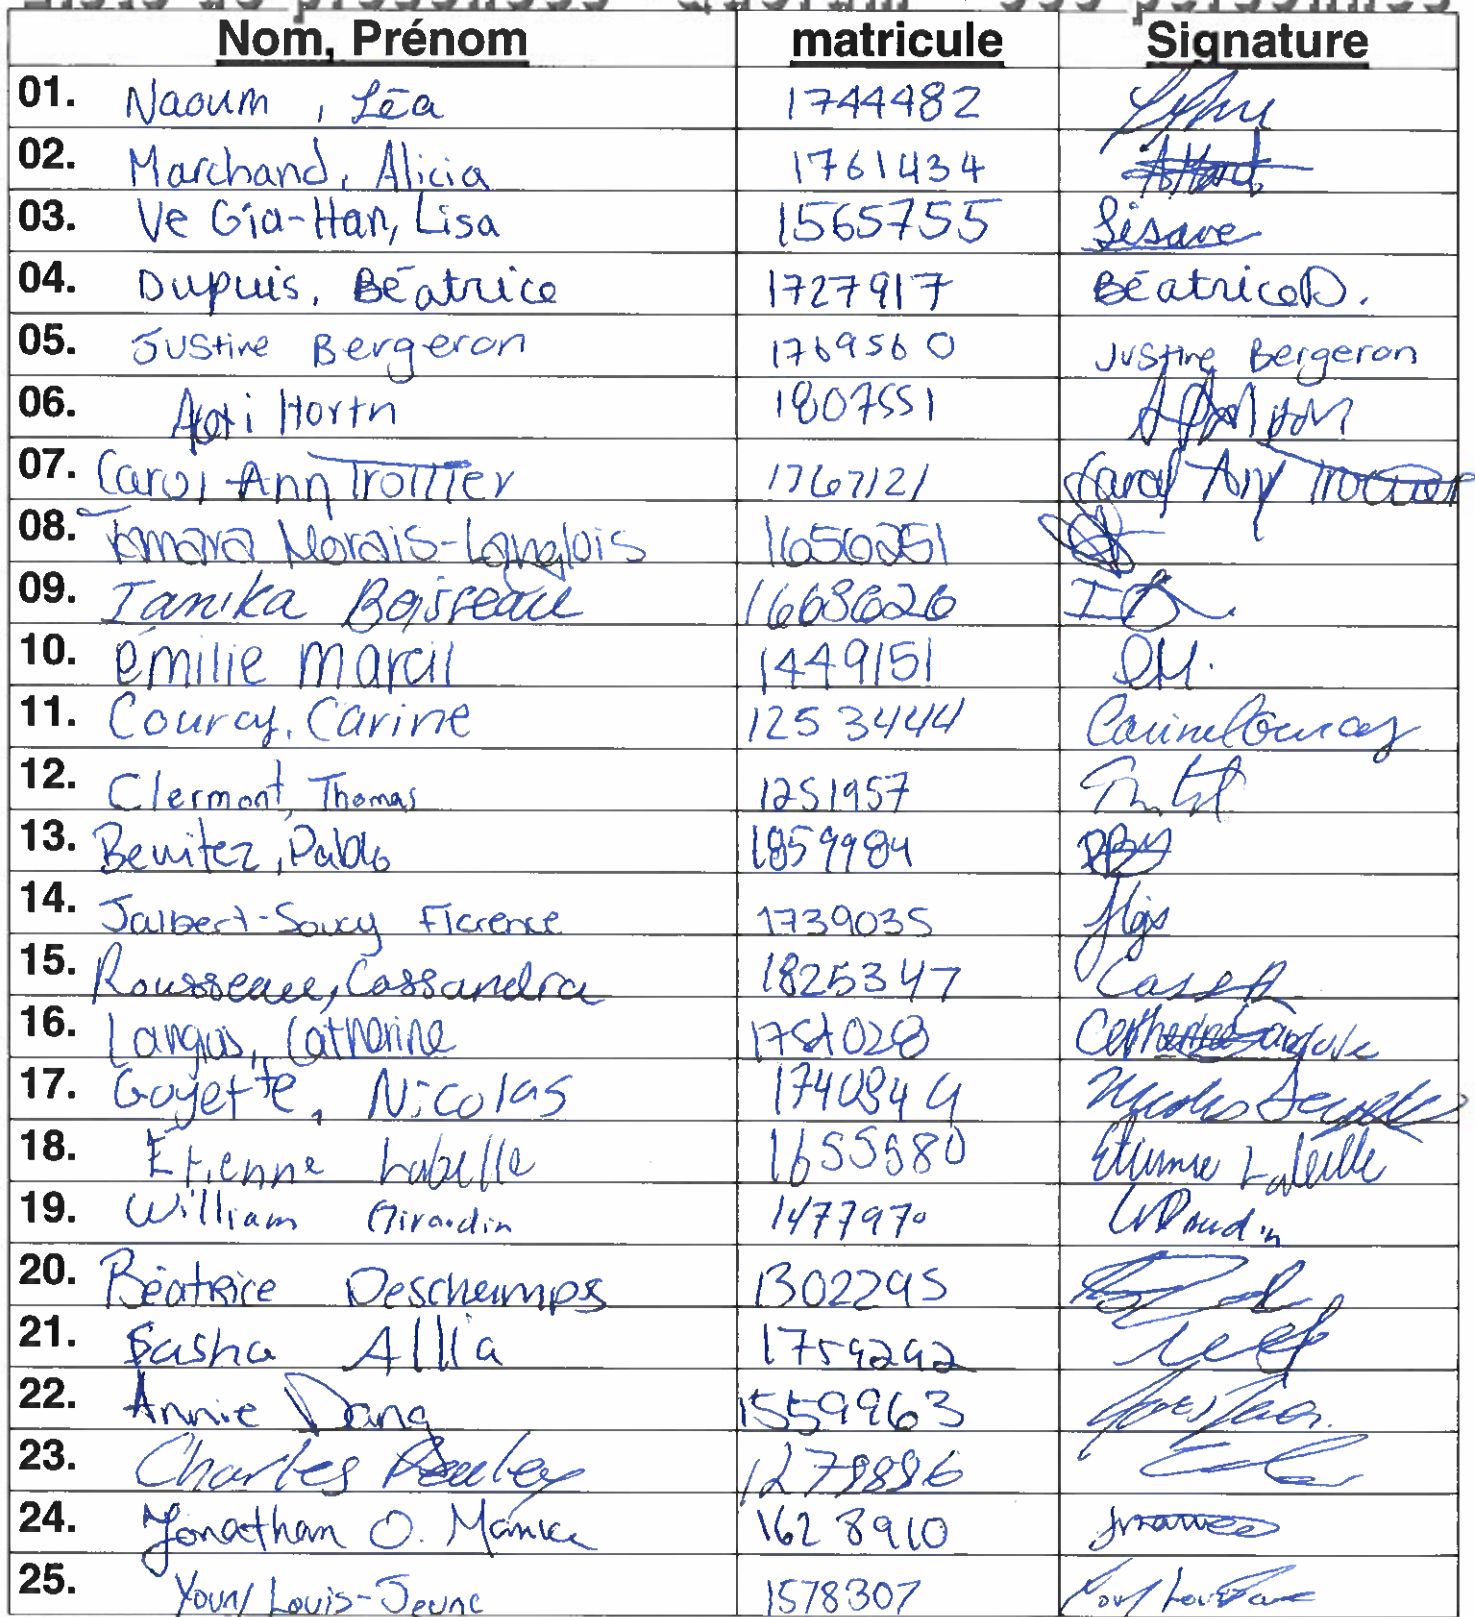 Liste de présences - Quorum - 335 personnes
Nom, Prénom matricule Signature
01. Naoum, Léa 1744482
02. Marchand, Alicia 1761434
03. Ve Gia-Han, Lisa 1565755 Lisave
04. Dupuis, Béatrice 1727917 Béatrice D.
05. Justine Bergeron 1769560 Justine Bergeron
06. Hortn 1807551
07. Carol-Ann Trottier 1767121 Carol Ann Trottier
08. Tamara Morais-Langlois 1656251
09. Ianika Boisseau 1668626 IB
10. émilie marcil 1449151 EM.
11. Courcy, Carine 1253444 Carine Courcy
12. Clermont, Thomas 1251957
13. Benitez, Pablo 1859984
14. Jalbert-Soucy Florence 1739035
15. Rousseau, Cassandra 1825347
16. Langis, Catherine Catherine
17. Goyette, Nicolas 1740849 Nicolas Goyette
18. Etienne Labelle 1655580 Etienne Labelle
19. William Girardin 1477970
20. Béatrice Deschamps 1302295
21. Sasha Allia 1759292
22. Annie Dang 1559963
23. Charles 1279886
24. Jonathan O. 1628910
25. Youry Louis-Jeune 1578307